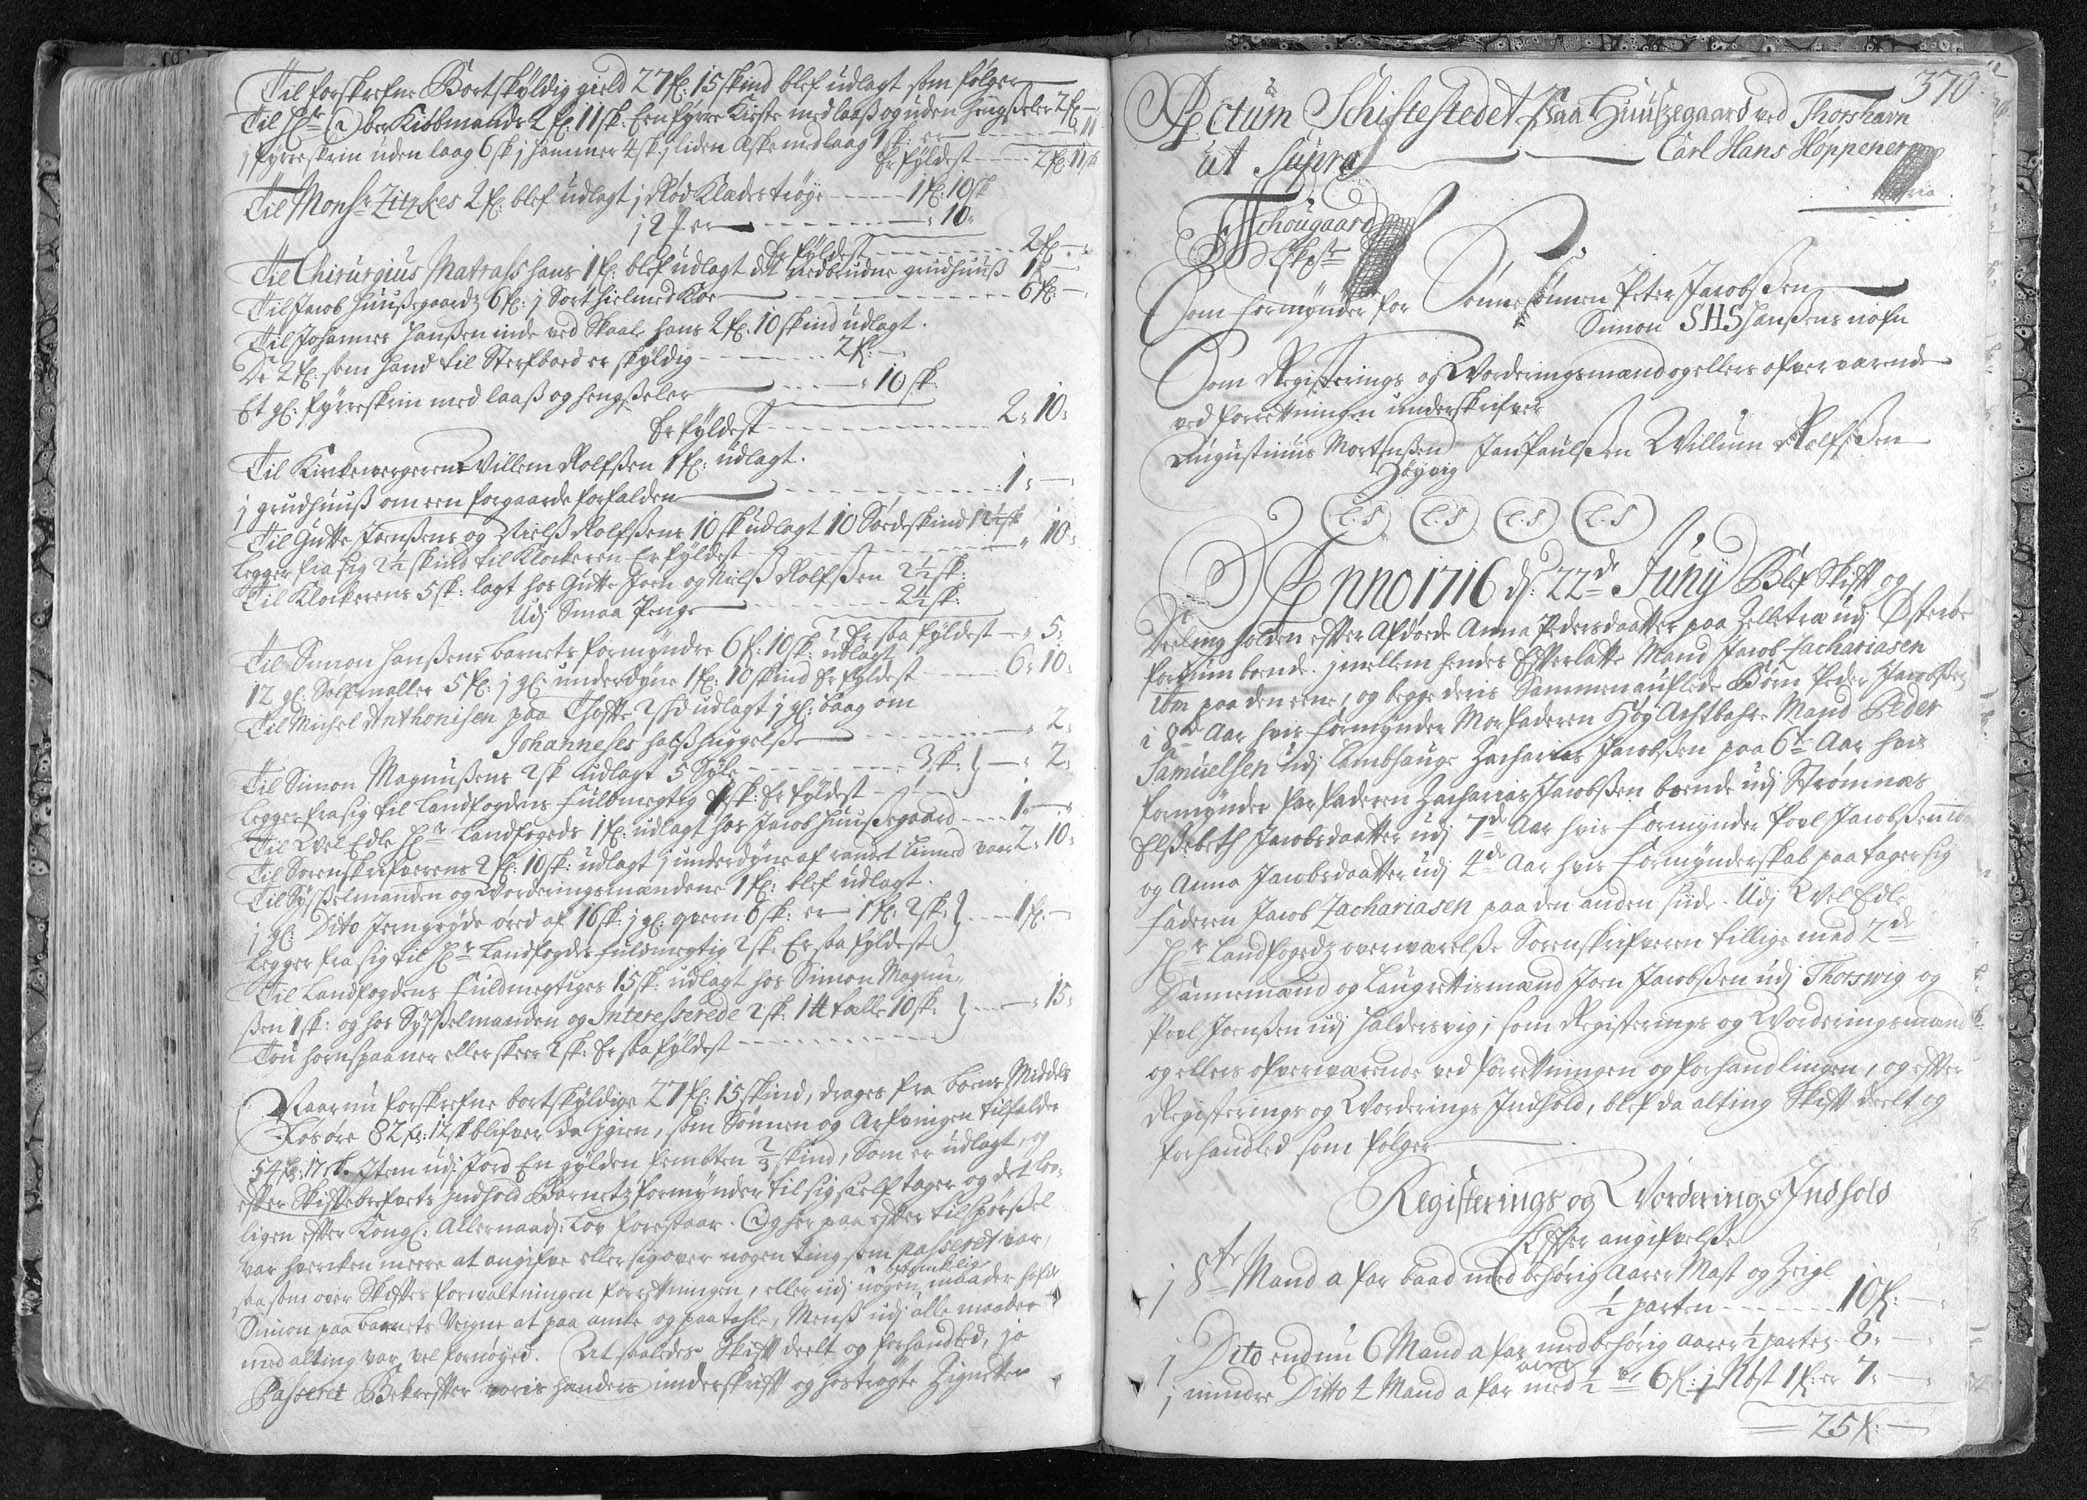 Til forskrefne Bortskyldig gield 27 fl: 15 skind blef udlagt som følger
Til Hr Kiøbmands 2 fl: 11 sk: Een fyrre Kiste med laaß og uden hengßeler 2 fl —
j fyrreskrin uden laag 6 sk j hammer 4 sk: j liden Æske med laag 1 sk: er — 11
Er fyldest — 2 fl 11 sk
Til Monsr Zitzkes 2 fl: blef udlagt j Rød Klædes trøye — 1 fl: 10 sk
— 10
Er fyldest — 2 fl —
Til Chirurgius Matrass hans 1 fl: blef udlagt dit nedbrudne grudhuuß 1 fl —
Til Jacob Huußegaardz 6 fl: j Sort hielmed Koe — 6 fl: —
Til Johannes Hanßen inde ved Skaale hans 2 fl: 10 skind udlagt.
De 2 fl: som hand til Sterfboed er skyldig — 2 fl: —
Et gl: fyrreskrin med laaß og hengßeler — 10 sk:
Er fyldest — 2: 10:
Til Kirkewergeren Willem Rolfßen 1 fl: udlagt.
j grudhuuß om een forgaarde forfalden — 1: —
Til Gutte Joenßens og Nielß Rolfßens 10 sk udlagt 10 Søedeskind 12½ sk
legger fra sig 2½ skind til Klockeren Er fyldest — 10:
Til Klockerens 5 sk: lagt hos Gutte Joen og Nielß Rolfßen 2½ sk:
Udj Smaa Penge — 2½ sk:
Er saa fyldest — 5:
Til Simon Hanßens barnets formynder 6 fl: 10 sk: udlagt
12 gl: Sølfmaller 5 fl: j gl: underdyne 1 fl: 10 skind Er fyldest — 6: 10:
Til Michel Anthonisen paa Thofte 2 sk udlagt j gl: baag om
Johanneses halß huggelße — 2:
Til Simon Magnußens 2 sk udlagt 5 Syle — 3 sk: } — 2:
legger fra sig til Landfogdens fuldmegtig 1 sk: Er fyldest
Til Wel Edle Hr Landfogeds 1 fl: udlagt hos Jacob Huußegaard — 1: —
Til Sorenskrifverens 2 fl: 10 sk: udlagt j underdyne af randet linned vaar 2: 10:
Til Sysselmanden og Worderingsmændene 1 fl: blef udlagt.
j gl: Dito Jerngryde øred af 16 sk: j gl: qvern 6 sk: er 1 fl: 2 sk: } — 1 fl: —
legger fra sig til Hr Landfogdes fuldmegtig 2 sk: Er saa fyldest
Til Landfogdens Fuldmegtiges 15 sk: udlagt hos Simon Magnu-
ßen 1 sk: og hos Sysselmanden og Interesserede 2 sk: 1 lt talle 10 sk: } — 15:
Tou hornspaaner eller skeer 2 sk: Er saa fyldest
Naar nu forskrefne bortskyldige 27 fl: 15 skind, drages fra boens Middels
Løsøre 82 fl: 12 sk blifver da igien, som Sønnen og Arfvingen tilfalder
54 fl: 17 sk. Item udj Jord En gylden femten 2/3 skind, Som er udlagt, og
efter Skiftebrefvets Indhold Barnetz formynder til sig self tager og det lov-
ligen efter Kongl: Allernaad: Lov forestaar. Og her paa efter tilspørßel
var hvercken meere at angifve eller sigover nogen ting som passeret var,
saa som over Skiftes forwaltningen forretningen, eller udj nogen maader hafde
Simon paa barnets Vegne at paa anke og paatahle, Menß udj alle maader
med alting var vel fornøyed. At saaledes Skift deelt og forhandled, jo
Passeret Bekrefter woris hænders underskrift og hostrøgte Zigneter

370
Actum Schiftestedet Paa Huußegaard ved Thorshavn
ut Supra — Carl Hans Höppener
mpria
Schougaard
Som formynder for Sønnesønnen Peter Jacobßen
Simon SHS Hanßens nafn
Som Registerings og Worderingsmænd og ellers ofverværende
ved forretningen underskrifver
Augustinus Mortenßen Jan Paulßen Willum Rolfsßen
Høyvig
L.S L.S L.S L.S
Anno 1716 d: 22de Juny Blef Skift og
Deeling holden efter Afdøede Anna Pedersdaatter paa Zelletræ udj Østerøe
fordum boende. jmellem hendes Efterlatte Mand Jacob Zachariasen
ibm paa den eene, og begge deris Sammenauflede Børn Peder Jacobßen
i 8de Aar hvis formynder Morfaderen Høy Achtbahre Mand Peder
Samuelsen udj Lambhauge Zacharias Jacobßen paa 6te Aar hvis
formynder farfaderen Zacharias Jacobßen boende udj Strømnæs
Elßebeth Jacobsdaatter udj 7de Aar hvis Formynder Povl Jacobßen ibm
og Anna Jacobsdaatter udj 4de Aar hvis Formynderskab paa tager sig
faderen Jacob Zachariasen paa den anden side. Udj Wel Edle
Hr Landfogedz overwærelße Sorenskrifveren tillige med 2de
Dannemænd og Laugrettismænd Joen Jacobßen udj Thorswig og
Povl Joenßen udj Halderswig, som Registerings og Worderingsmænd
og ellers ofverwærende ved forretningen og forhandlingen, og efter
Registerings og Worderings Indhold, blef da alting Skift deelt og
forhandled som følger
Registerings og Worderings Indhold
Efter angifvelße
j 8te Mand a far baad med behørig Aarer Mast og Zeigl
½ parten — 10 fl: —
j Dito endnu 6 Mand a far med behørig aarer ½ parten 8: —
j mindre Ditto 4 Mand a far med aarer ½ er 6 fl: j Nøst 1 fl: er 7: —
25 fl: —